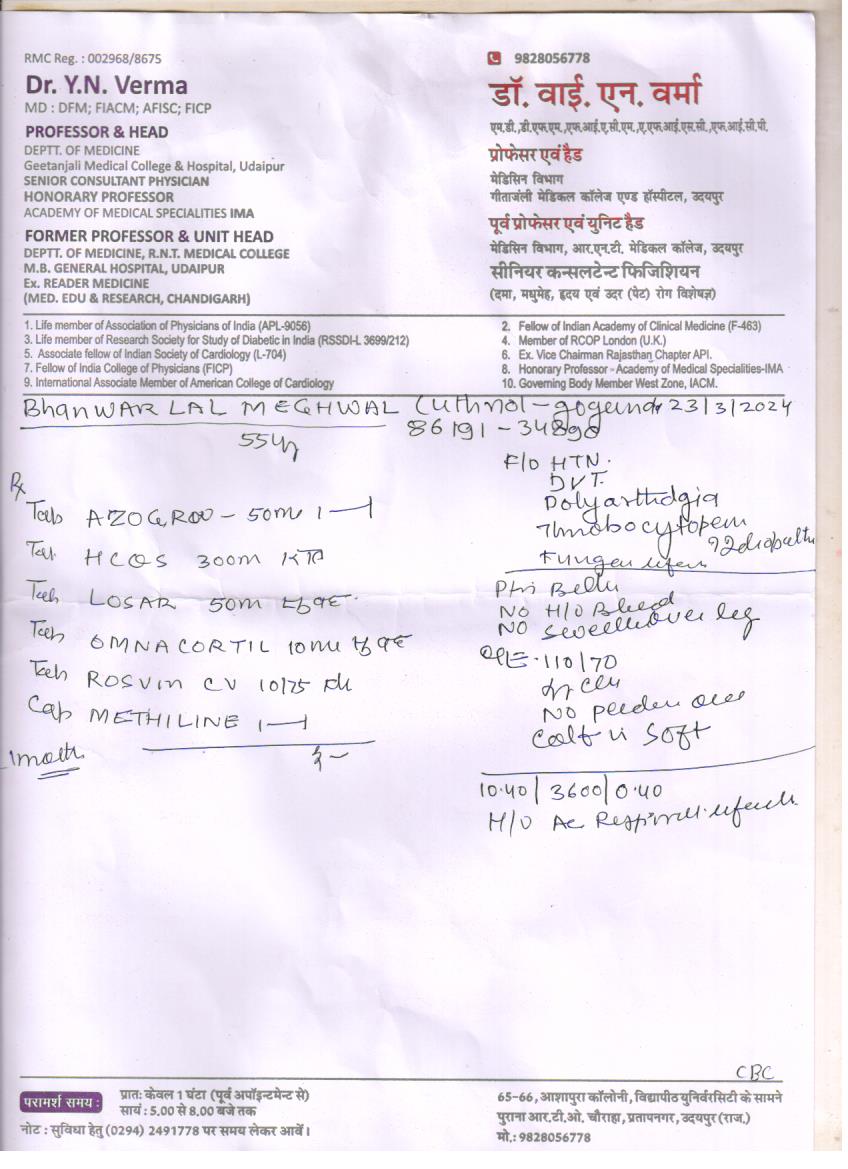 RMC Reg. : 002968/8675
Dr. Y.N. Verma
MD : DFM; FIACM; AFISC; FICP
PROFESSOR & HEAD
DEPTT. OF MEDICINE
Geetanjali Medical College & Hospital, Udaipur
SENIOR CONSULTANT PHYSICIAN
HONORARY PROFESSOR
ACADEMY OF MEDICAL SPECIALITIES IMA
FORMER PROFESSOR & UNIT HEAD
DEPTT. OF MEDICINE, R.N.T. MEDICAL COLLEGE
M.B. GENERAL HOSPITAL, UDAIPUR
Ex. READER MEDICINE
(MED. EDU & RESEARCH, CHANDIGARH)
9828056778
डॉ. वाई. एन. वर्मा
एम.डी.,डी.एफ.एम.,एफ.आई.ए.सी.एम.,ए.एफ.आई.एस.सी.,एफ.आई.सी.पी.
प्रोफेसर एवं हैड
मेडिसिन विभाग
गीतांजली मेडिकल कॉलेज एण्ड हॉस्पीटल, उदयपुर
पूर्व प्रोफेसर एवं युनिट हैड
मेडिसिन विभाग, आर.एन.टी. मेडिकल कॉलेज, उदयपुर
सीनियर कन्सलटेन्ट फिजिशियन
(दमा, मधुमेह, हृदय एवं उदर (पेट) रोग विशेषज्ञ)
1. Life member of Association of Physicians of India (APL-9056)
2. Fellow of Indian Academy of Clinical Medicine (F-463)
3. Life member of Research Society for Study of Diabetic in India (RSSDI-L 3699/212)
4. Member of RCOP London (U.K.)
5. Associate fellow of Indian Society of Cardiology (L-704)
6. Ex. Vice Chairman Rajasthan Chapter API.
7. Fellow of India College of Physicians (FICP)
8. Honorary Professor - Academy of Medical Specialities-IMA
9. International Associate Member of American College of Cardiology
10. Governing Body Member West Zone, IACM.
BhanWAR LAL MEGHWAL 23/3/2024
86191-34890
55y
Rx
Tab AZOGROV - 50m 1
Tab HCQS 300m
Tab LOSAR 50m
Tab OMNACORTIL 10m
Tab ROSVIN CV 10/75
Cap METHILINE 1
1 month
F/O HTN.
DVT.
Polyarthralgia
Fungal
NO H/O Bleed
NO swelling over leg
O/E - 110/70
NO
Calf is soft
10.40 / 3600 / 0.40
H/O Ac
CBC
परामर्श समय :
प्रातः केवल 1 घंटा (पूर्व अपॉइन्टमेन्ट से)
सायं : 5.00 से 8.00 बजे तक
नोट : सुविधा हेतु (0294) 2491778 पर समय लेकर आवें।
65-66, आशापुरा कॉलोनी, विद्यापीठ युनिर्वरसिटी के सामने
पुराना आर.टी.ओ. चौराहा, प्रतापनगर, उदयपुर (राज.)
मो.: 9828056778